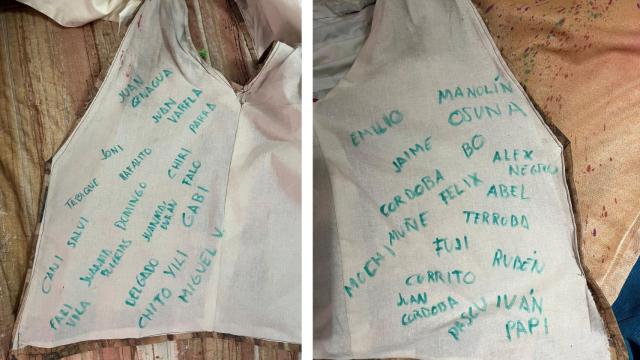 JUAN
GENAGUA
JUAN
VARELA
PARRA
JONI
RAFALITO
CHIRI
FALO
TABIQUE
DOMINGO
JUANMA
DURÁN
GABI
SALVI
CANI
JUANMA
DELGADO
YILI
MIGUEL V.
CHITO
FALI
VILA
MANOLÍN
OSUNA
EMILIO
BO
JAIME
ALEX
NEGRO
CORDOBA
FELIX
ABEL
MUÑE
TERROBA
MOCHI
FUJI
RUBÉN
CURRITO
JUAN
CORDOBA
PASCU
IVÁN
PAPI